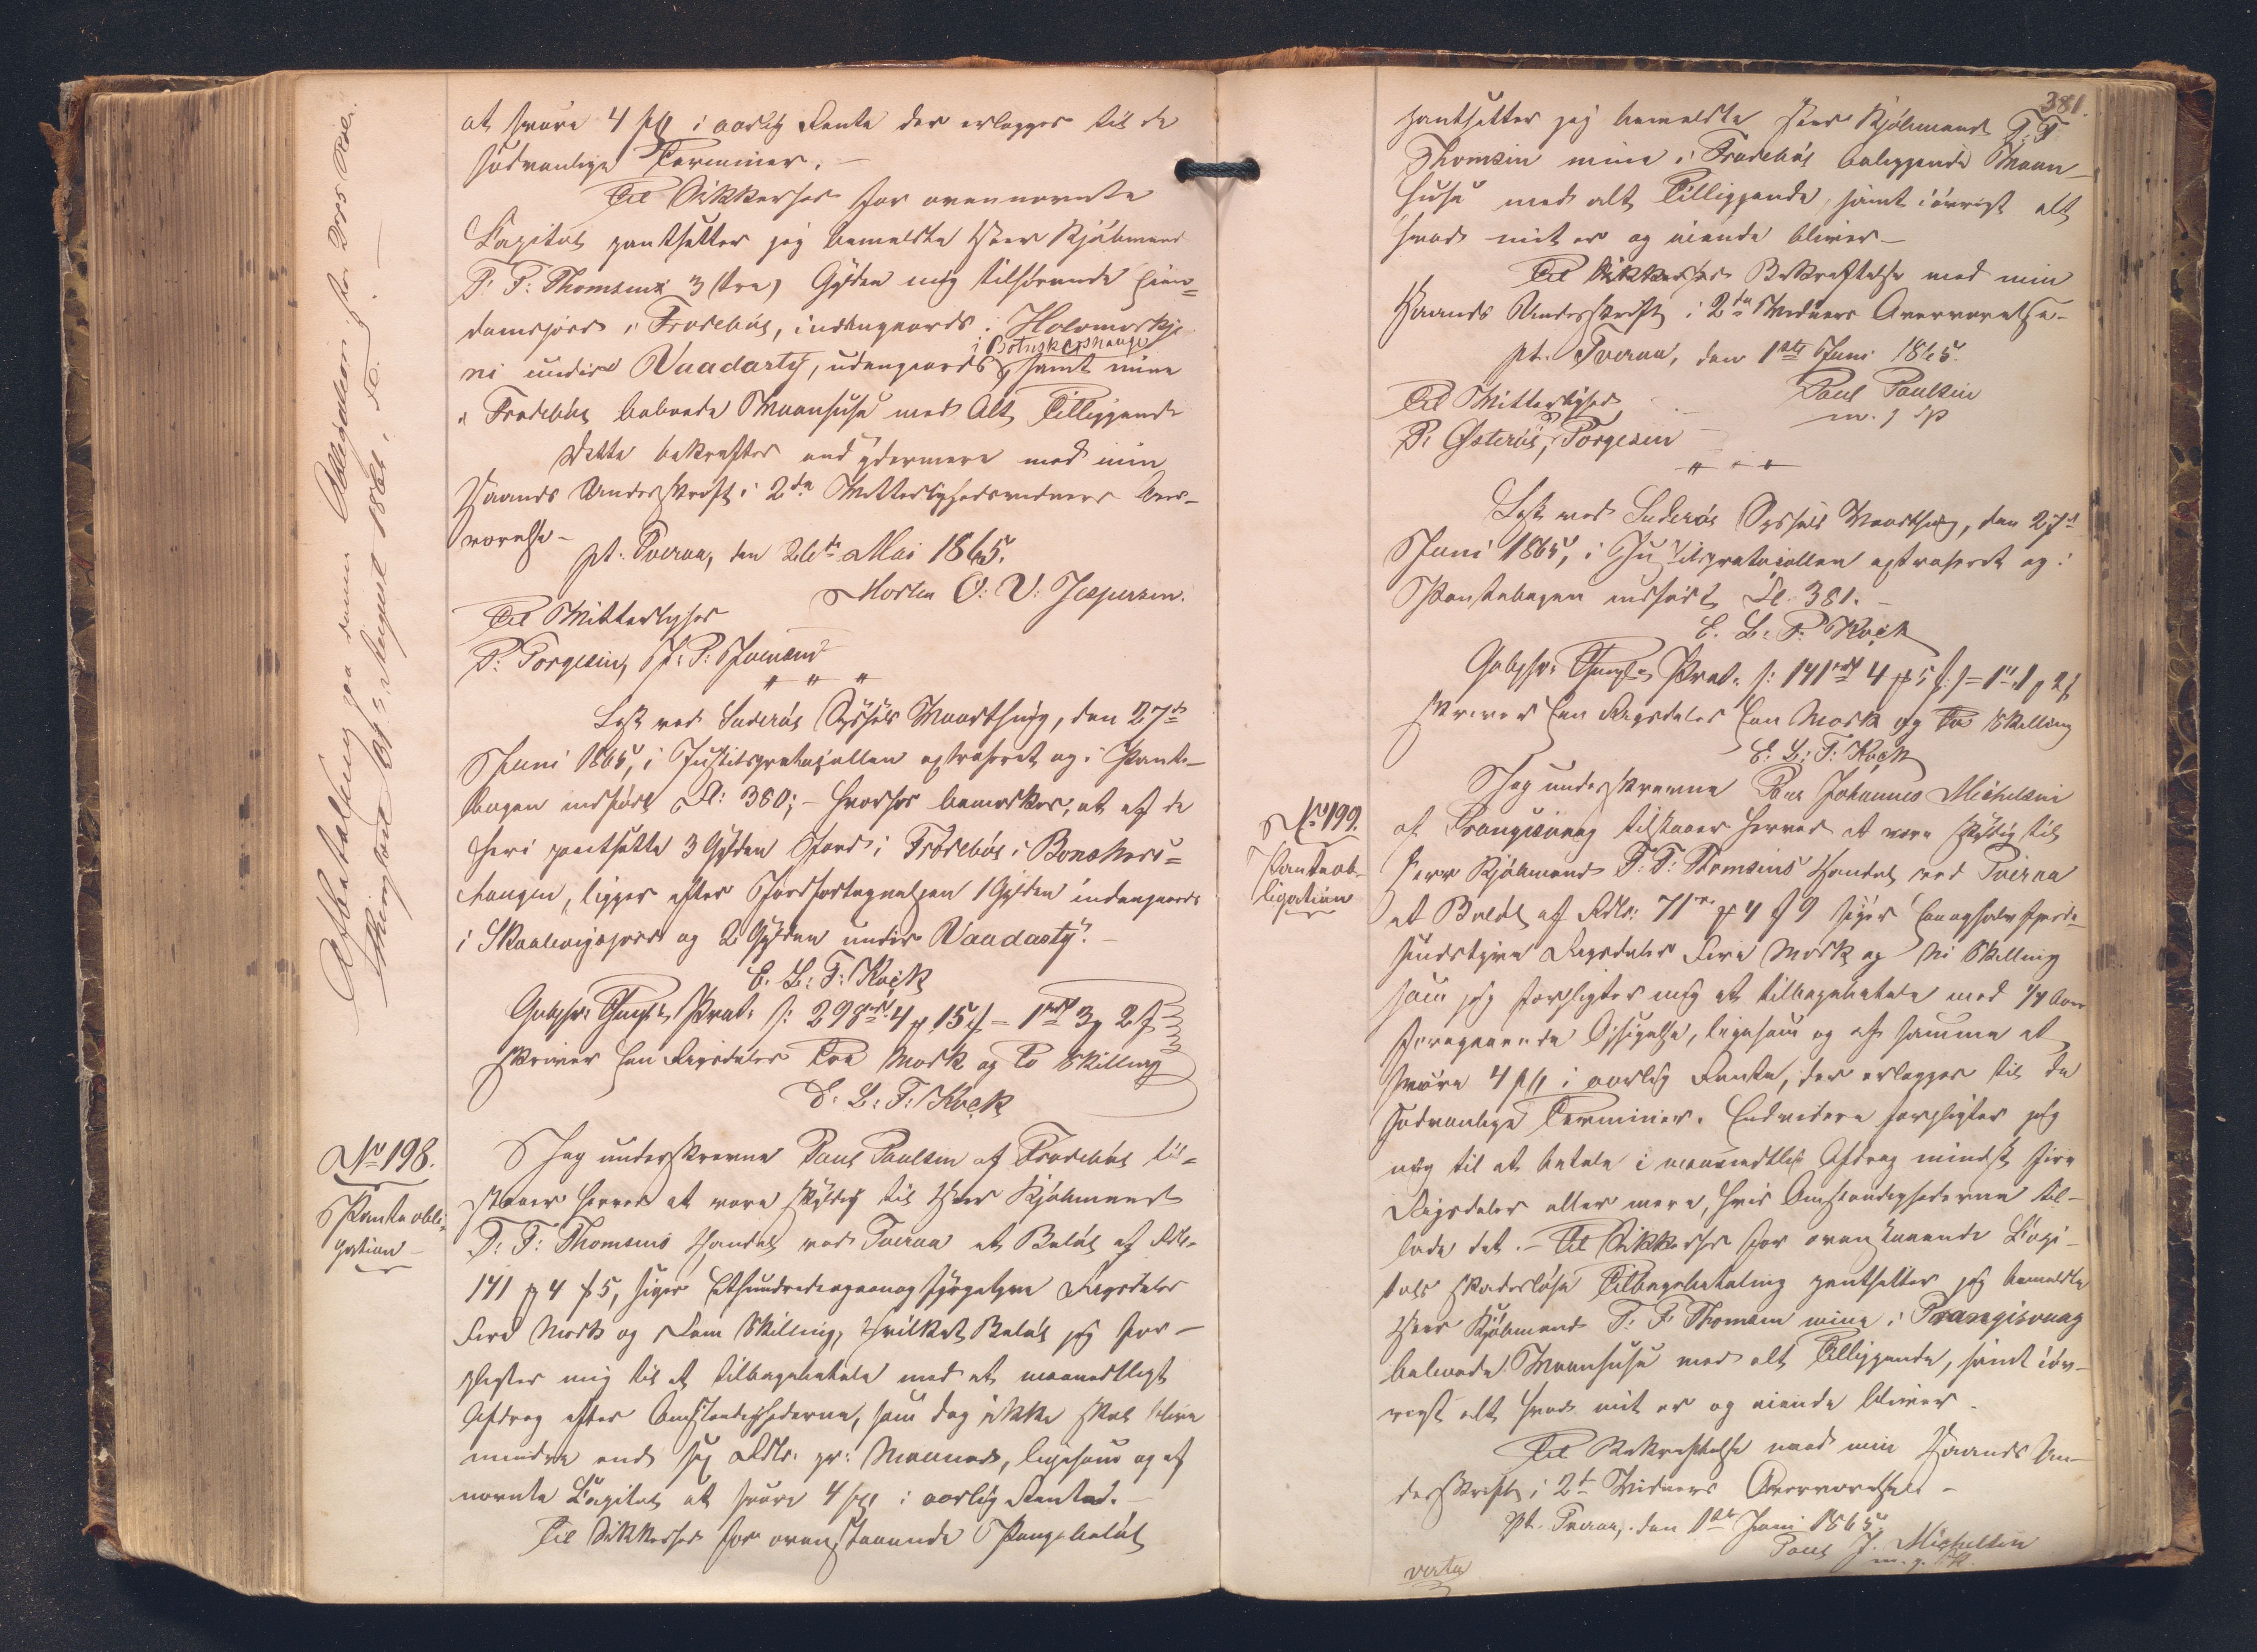 at svare 4 pCt i aarlig Rente der erlægges til de
sædvanlige Terminer. —
Til Sikkerhed for ovennævnte
Capital pantsætter jeg bemeldte Herr Kjøbmand
T. F: Thomsen 3 (tre) Gylden mig tilhørende Eien=
domsjord i Frodebøe, indengjærds i Holomorskje
ni under Vaadarty, udengjærds i Botnskeshauge samt mine
i Frodebøe beboede Vaanhuse med Alt Tilliggende
Dette bekræfter end ydermere med min
Haands Underskrift i 2de Vitterlighedsvidners Over-
værelse —
pt. Tveraa, den 26de Mai 1865.
Morten O: V: Jespersen.
Til Vitterlighed
P: Torgesin, J: P: Joensen
Læst ved Suderøe Syssels Vaarthing, den 27de
Juni 1865, i Justitsprotocollen extraheret og i Pante-
bogen indført Fl: 380; — hvorhos bemærkes, at af de
heri pantsatte 3 Gylden Jord i Frodebøe i Bonskers=
haugen, ligger efter Jordfortegnelsen 1 Gylden indengjærds
i Skaalevigsjord og 2 Gylden under Vaadasty. —
E. L: T: Kock
Gebyhr: Thingl. Prot. /: 298rd 4 p 15 /: = 1rd 3 p 2 s
skriver En Rigsdaler Tre Mark og To Skilling
E. L: T: Kock
No 198.
Panteobli-
gation —
Jeg underskrevne Poul Poulsen af Frodebøe til-
staaer herved at være skyldig til Herr Kjøbmand
T: F: Thomsens Handel ved Tveraa et Beløb af Rdlr.
141 p 4 s 5, siger Ethundredeogeenogfyrgetyve Rigsdaler
Fire Mark og Fem Skilling, hvilket Beløb jeg for-
pligter mig til at tilbagebetale med et maanedtligt
Afdrag efter Omstændighederne, som dog ikke skal blive
mindre end sex Rdlr. pr: Maaned, ligesom og af
nævnte Capital at svare 4 pCt i aarlig Rente. —
Til Sikkerhed for ovenstaaende Pengebeløb
Afbetaling paa denne Obligation
Thinglæst August 1866.
381.
pantsætter jeg bemeldte Herr Kjøbmand T: F:
Thomsen mine i Frodebøe beliggende Vaan-
huse med alt Tilliggende, samt iøvrigt alt
hvad mit er og eiende bliver —
Til Bekræftelse med min
Haands Underskrift i 2de Vidners Overværelse —
pt. Tveraa, den 1ste Juni 1865.
Poul Poulsen
m. f. P
Til Vitterlighed
P: Østerøe, P Torgesen
Læst ved Suderøe Syssels Vaarthing, den 27de
Juni 1865, i Justitsprotocollen extraheret og i
Pantebogen indført Fl. 381. —
E. L: T: Kock
Gebyhr: Thingl. Prot. /: 141rd 4 p 5 /: = 1rd 1 p 2 s
skriver Een Rigsdaler Een Mark og To Skilling
E: L: T: Kock
No 199.
Panteob-
ligation
Jeg underskrevne Poul Johannes Michelsen
af Trangisvaag tilstaaer herved at være skyldig til
Herr Kjøbmand T. F: Thomsens Handel ved Tveraa
et Beløb af Rdlr: 71 p 4 s 9 siger Een og halvfjerde-
sindstyve Rigsdaler Fire Mark og Ni Skilling
som jeg forpligter mig at tilbagebetale med 1/4 Aars
foregaaende Opsigelse, ligesom og af samme at
svare 4 pCt i aarlig Rente, der erlægges til de
sædvanlige Terminer. Endvidere forpligter jeg
mig til at betale i maanedtlig Afdrag mindst fire
Rigsdaler eller mere, hvis Omstændighederne til-
lade det. — Til Sikkerhed for ovenstaaende Capi-
tals skadesløse Tilbagebetaling pantsætter jeg bemeldte
Herr Kjøbmand T: F: Thomsen mine i Trangisvaag
beboede Vaanhuse med alt Tilliggende, samt iøv-
rigt alt hvad mit er og eiende bliver —
Til Bekræftelse med min Haands Un-
derskrift i 2de Vidners Overværelse —
pt. Tveraa, den 1ste Juni 1865.
Poul J. Michelsen
verte